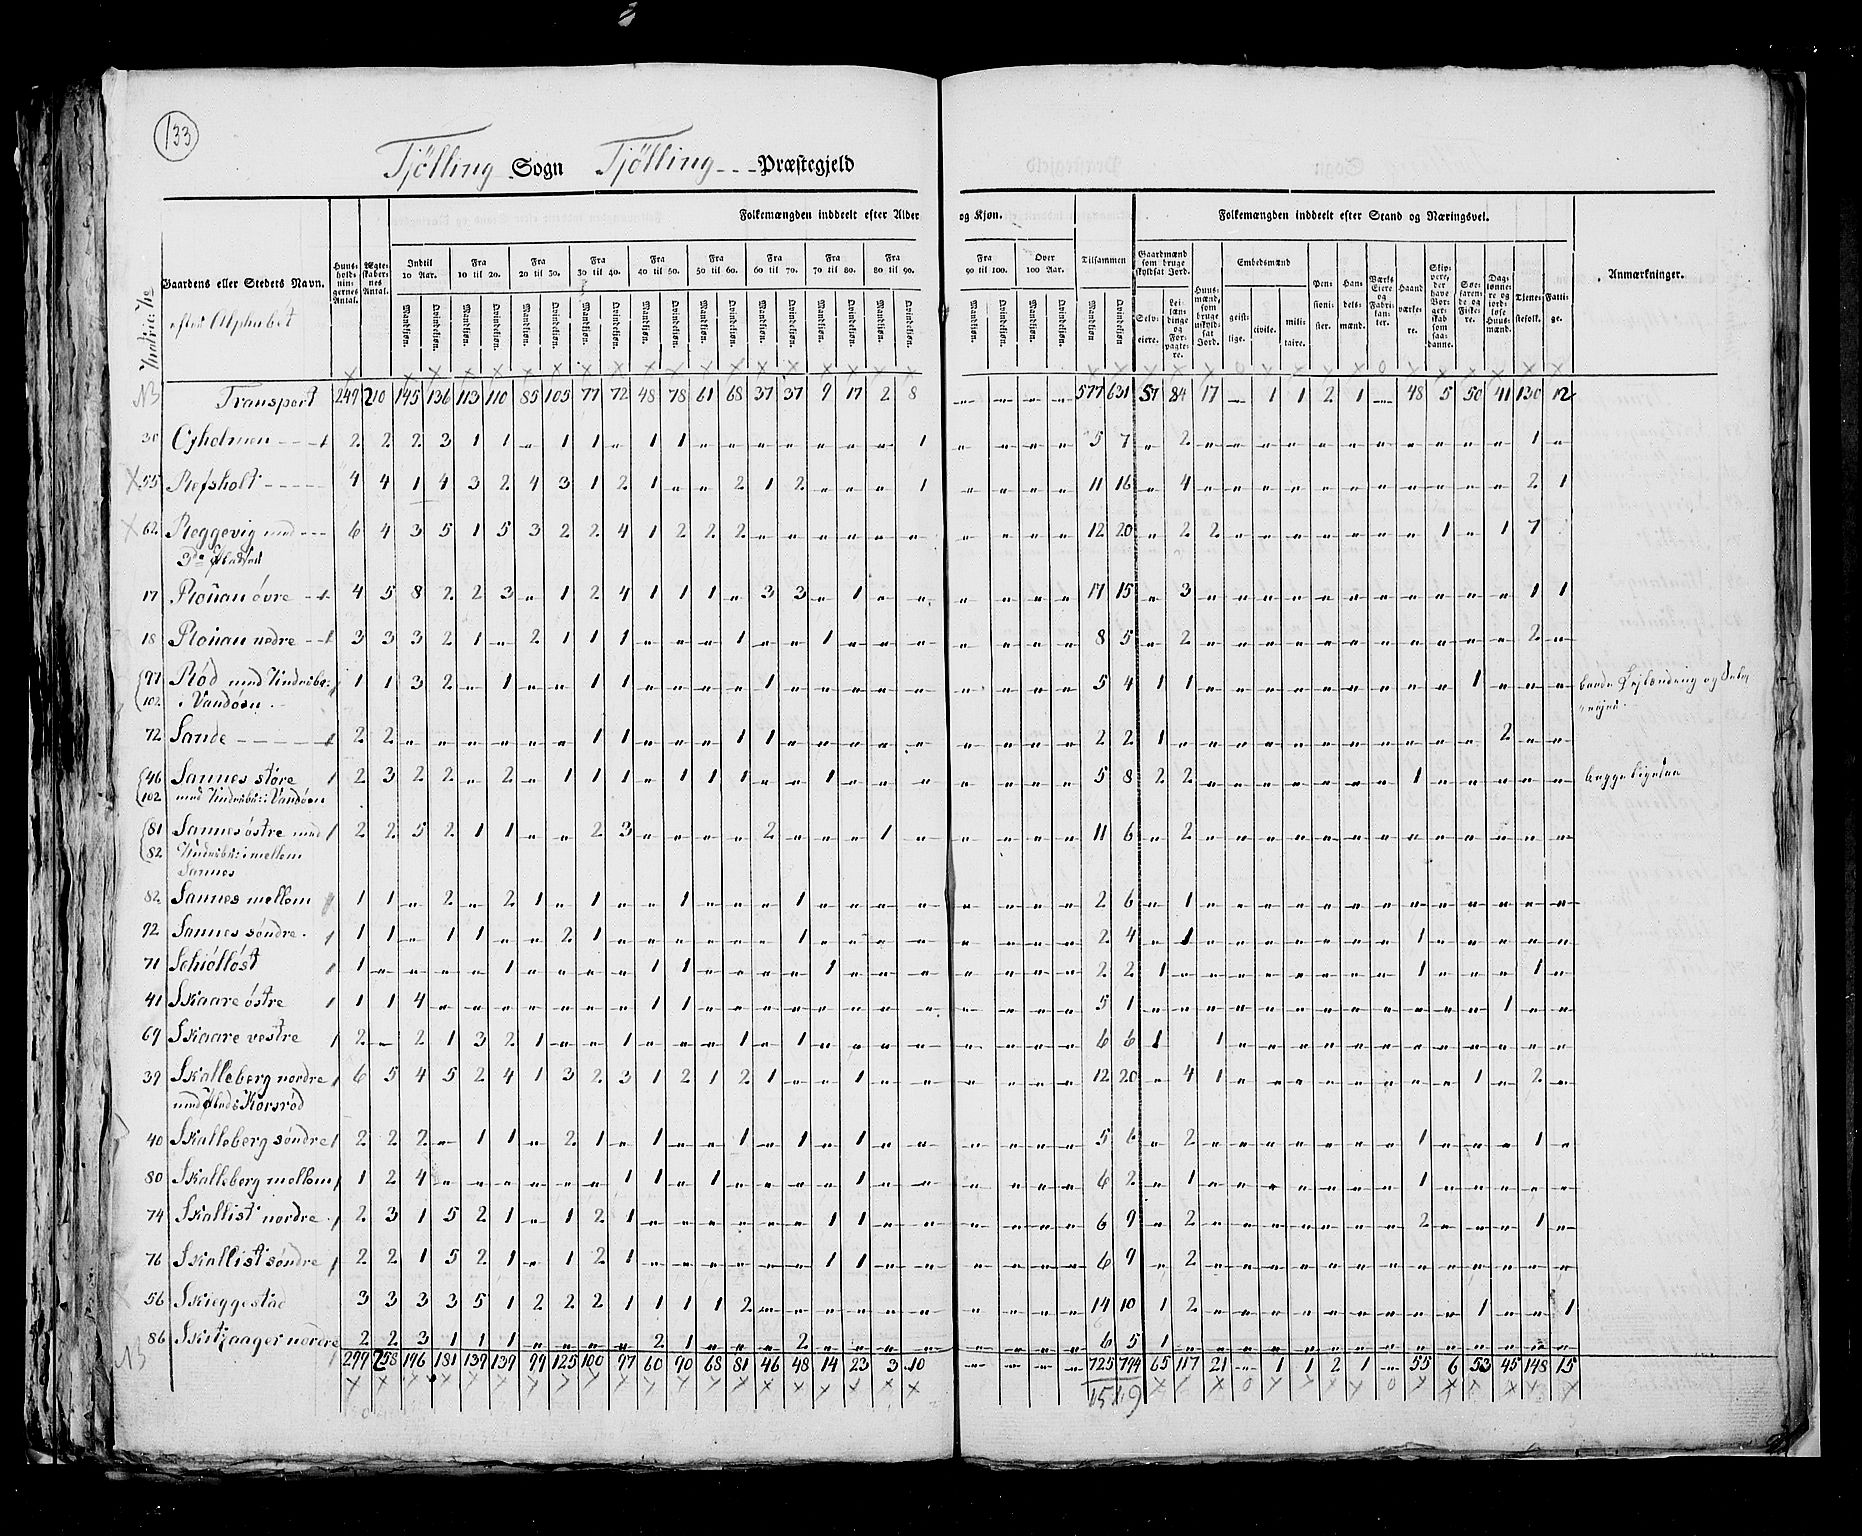 133
Tjölling Sogn Tjölling - - - Præstegjeld
Gaardens eller Stedets Navn.
efter Alphabet
Matric: No
Huus-holdnin-gernes Antal.
Ægte-skaber-nes Antal.
Folkemængden inddeelt efter Alder og Kjøn.
Indtil 10 Aar. Fra 10 til 20. Fra 20 til 30. Fra 30 til 40. Fra 40 til 50. Fra 50 til 60. Fra 60 til 70. Fra 70 til 80. Fra 80 til 90. Fra 90 til 100. Over 100 Aar. Tilsammen
Mandkiøn. Qvindekiøn.
Folkemængden inddeelt efter Stand og Næringsvei.
Gaardmænd som bruge skyldsat Jord. Selv-eiere. Lei-læn-dinge og For-pagte-re.
Huus-mænd, som bruge uskyld-sat Jord.
Embedsmænd geist-lige. civile. mili-taire.
Pen-sioni-ster.
Han-dels-mænd.
Værks Eiere og Fabri-kan-ter.
Haand-værke-re.
Skip-pere, der have Bor-ger-skab som saa-danne.
Søe-faren-de og Fiske-re.
Dag-lønne-re og jord-løse Huus-mænd.
Tjene-stefolk.
Fatti-ge.
Anmærkninger.
Transport 249 210 145 136 113 110 85 105 77 72 48 78 61 68 37 37 9 17 2 8 " " " " 577 631 57 84 17 " 1 1 2 1 " 48 5 50 41 130 12
30 Oxholmen 1 2 2 2 3 1 1 " 1 1 " 1 1 " " " " " " " 1 " " " " 5 7 " 2 " " " " " " " " " " " 1 "
55 Refsholt 4 4 1 4 3 2 4 3 1 2 1 " " 2 1 2 " " " 1 " " " " 11 16 " 4 " " " " " " " " " " " 2 1
62 Reggevig med 6 4 3 5 1 5 3 2 2 4 1 2 2 2 " " " " " " " " " " 12 20 " 2 2 " " " " " " " 1 " 1 7
3de Pladser
17 Rouau övre 1 4 5 8 2 2 3 " 1 2 4 1 1 1 " 3 3 " 1 " " " " " " 17 15 " 3 " " " " " " " " " " " 1 1
18 Rouau nedre 1 3 3 3 2 1 " 2 1 1 1 " " " 1 " " 1 " " " " " " " 8 5 " 2 " " " " " " " " " " " 2 "
97 Röd med Underbr: 1 1 3 2 " 1 " " 1 1 " " " " 1 " " " " " " " " " 5 4 1 1 " " " " " " " " " 1 " " "
102 i Vandöen
72 Sande 1 2 2 " " " " " " 1 1 " " " 1 1 " " " " " " " " " 2 2 1 " " " " " " " " " " " 2 " "
46 Sannes störe 1 2 3 2 2 " 2 " 1 1 1 " 1 1 1 " " 1 " " " " " " " 5 8 2 2 " " " " " " " 1 " " " " " begge ligesaa
102 med Underbr: i Vandöen
81 Sannes östre med 1 2 2 5 2 1 1 " " 2 3 " " " " 2 " " " 1 " " " " " 11 6 " 2 " " " " " " " " " " " " "
82 Underbr: i mellem
Sannes
82 Sannes mellem 1 1 " 2 " 2 1 " 1 " " 1 " " " 1 " " " " " " " " 2 6 " 1 " " " " " " " " " " " " "
92 Sannes söndre 1 1 1 " 1 1 " " 2 1 " " " " " " 1 " " " " " " " " 2 4 " 1 " " " " " " " 1 " " " " "
71 Schiöllöst 1 " " " " " 1 " " " " 1 1 " " " " 1 " " " " " " " 2 2 1 " " " " " " " " 1 " " " 1 "
41 Skaare östre 1 1 1 4 " " " " " " " 1 1 " " " " " " " " " " " " 5 1 " " " " " " " " " " " " 1 " "
69 Skaare vestre 1 2 " 2 1 3 2 1 " " 1 " " " 1 " 1 " " " " " " " " 6 6 1 1 " " " " " " " " " " " "
39 Skalleberg nordre 1 6 5 4 5 2 4 1 3 2 3 1 2 1 2 1 " " 1 " " " " " " 12 20 " 4 1 " " " " " " " " 1 " 2 "
med Plads Korsröd
40 Skalleberg söndre 1 2 2 2 " 1 1 " 2 1 " 1 " " 1 " 1 " 1 " " " " " " 5 6 " 2 " " " " " " " 1 " " " 1 "
80 Skalleberg mellem 1 1 2 4 " " " " " " 1 1 " 1 " " " " 1 " " " " " " 6 2 " 1 " " " " " " " 1 " " " " "
74 Skallist nordre 1 2 3 1 5 2 1 " 1 2 1 " " " " " " 1 1 " " " " " " 6 9 " 2 " " " " " " " 2 " " " 1 "
76 Skallist söndre 1 2 2 1 5 2 1 " 1 2 1 " " " " " " 1 1 " " " " " " 6 9 " 2 " " " " " " " " " " " " "
56 Skieggestad 3 3 3 3 5 1 2 2 2 1 1 1 1 2 " " " " " " " " " " 14 10 1 2 " " " " " " " " " 1 " " 1
86 Skitzaager nordre 2 2 3 1 1 1 " " " " 2 1 " " " 2 " " " " " " " " 6 5 1 " " " " " " " " " " " " " "
299 258 196 181 139 139 99 125 100 97 60 90 68 81 46 48 14 23 3 10 " " " " 725 794 65 117 21 " 1 1 2 1 " 55 6 53 45 148 15
1519